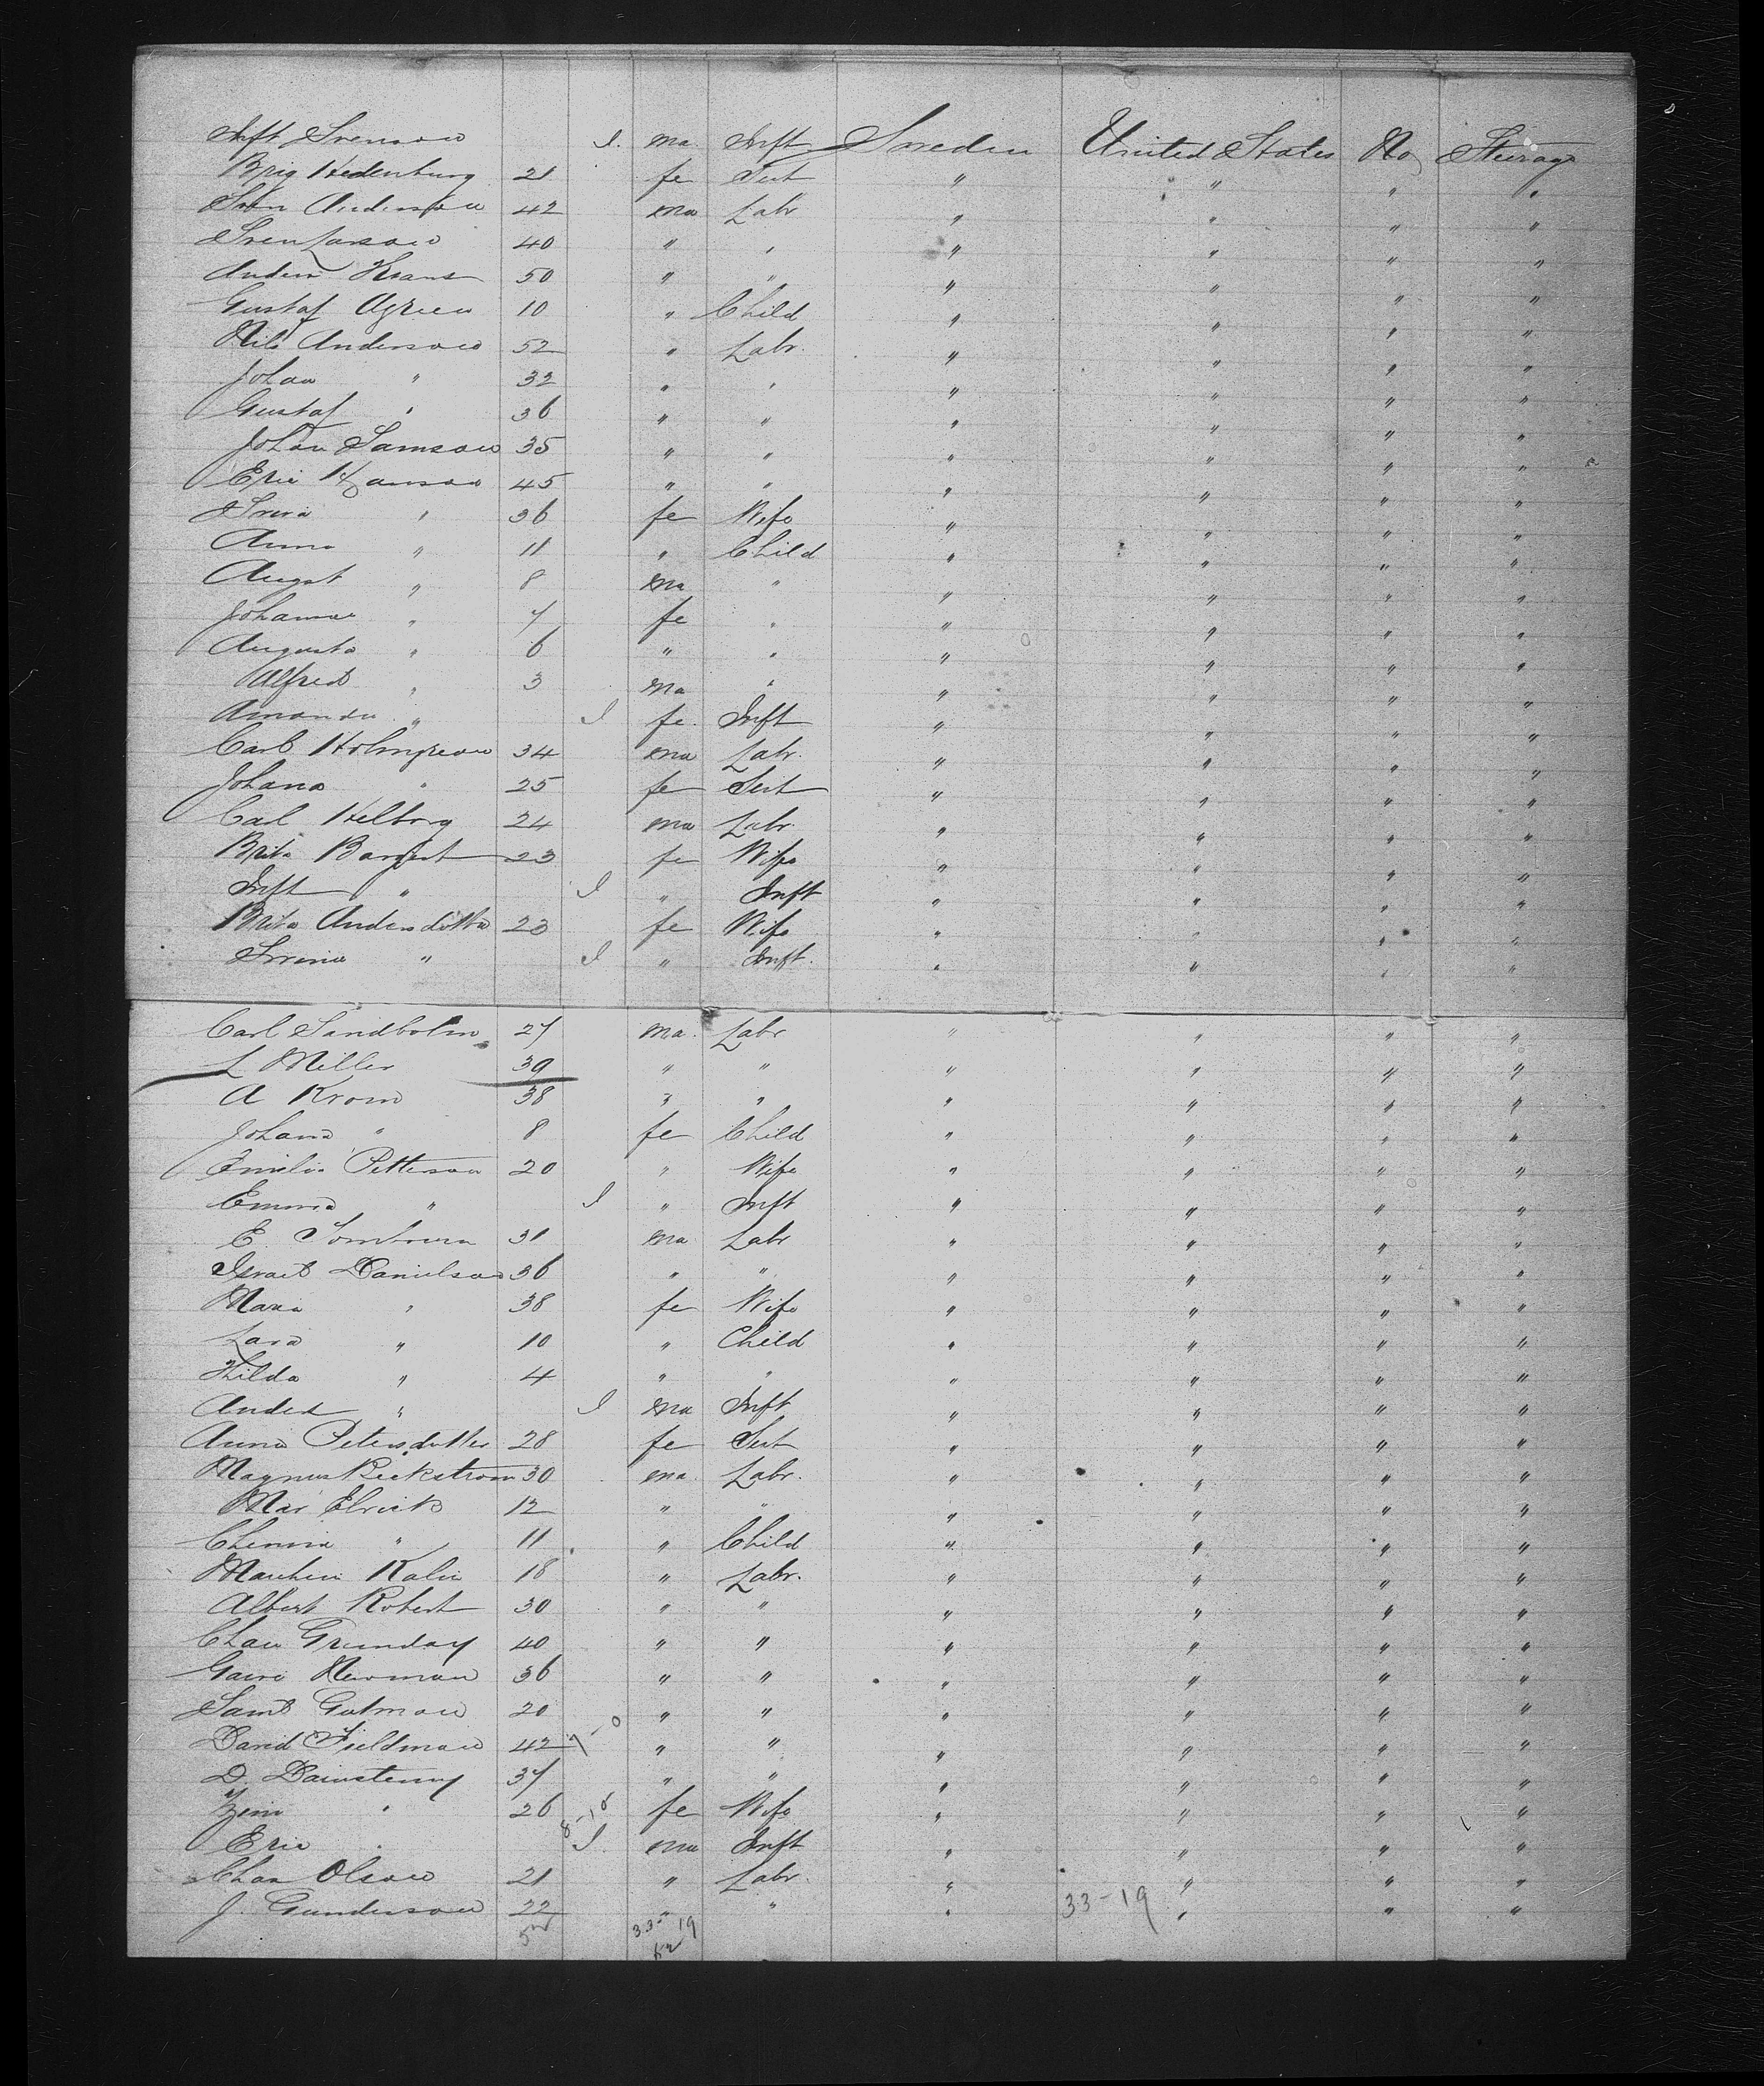 Inft Svenson I. ma Inft Sweden United States No Steerage
Brig Hedenburg 21 fe Svt " " " "
Sven Anderson 42 ma Labr " " " "
Sven Larson 40 " " " " " "
Anders Krans 50 " " " " " "
Gustaf Agrien 10 " Child " " " "
Nils Anderson 52 " Labr. " " " "
Johan " 32 " " " " " "
Gustaf " 36 " " " " " "
Johan Samson 35 " " " " " "
Eric Hanson 45 " " " " " "
" 36 fe Wife " " " "
Anna " 11 " Child " " " "
Augst " 8 ma " " " " "
Johanna " 7 fe " " " " "
Augusta " 6 " " " " " "
Alfred " 3 ma " " " " "
Amanda " I fe. Inft " " " "
Carl Holmgren 34 ma Labr. " " " "
Johana " 25 fe Svt " " " "
Carl Helborg 24 ma Labr. " " " "
Brita 23 fe Wife " " " "
Inft " I " Inft " " " "
Brita Andersdotter 23 fe Wife " " " "
" I " Inft. " " " "
Carl Sandbolm 27 ma. Labr " " " "
L Miller 39 " " " " " "
A Krom 38 " " " " " "
Johana " 8 fe Child " " " "
Emelia Petterson 20 " Wife " " " "
Emma " I " Inft " " " "
E. 31 ma Labr " " " "
Israel Danielson 36 " " " " " "
Maria " 38 fe Wife " " " "
Lara " 10 " Child " " " "
Hilda " 4 " " " " " "
Anded " I ma Inft " " " "
Anna Petersdutter 28 fe Svt " " " "
Magnus Reckstrom 30 ma. Labr. " " " "
Mar Elrick 12 " " " " " "
" 11 " Child " " " "
Kalin 18 " Labr. " " " "
Albert Robert 30 " " " " " "
Chas 40 " " " " " "
Newman 36 " " " " " "
Saml Gutman 20 " " " " " "
David Fieldman 42 7-0 " " " " " "
D. 37 " " " " " "
" 26 8-10 fe Wife " " " "
Eric " I. ma Inft " " " "
Chas Olson 21 " Labr. " " " "
J. Gunderson 22 " " " " " "
33-19
33-19